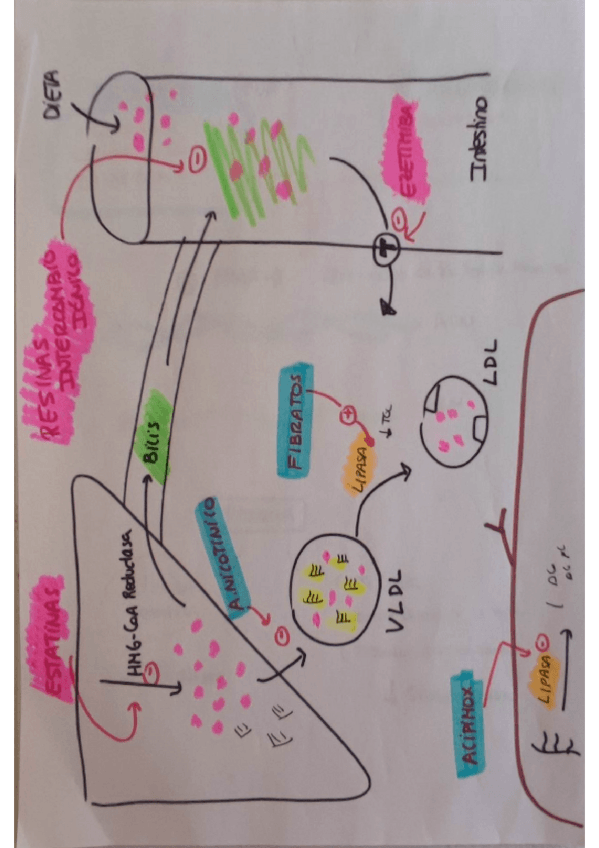 ESTATINAS
HMG-CoA Reductasa
RESINAS
INTERCAMBIO
IÓNICO
DIETA
Bilis
A.NICOTÍNICO
VLDL
FIBRATOS
LIPASA
LDL
EZETIMIBA
T
Intestino
ACIPIMOX
LIPASA